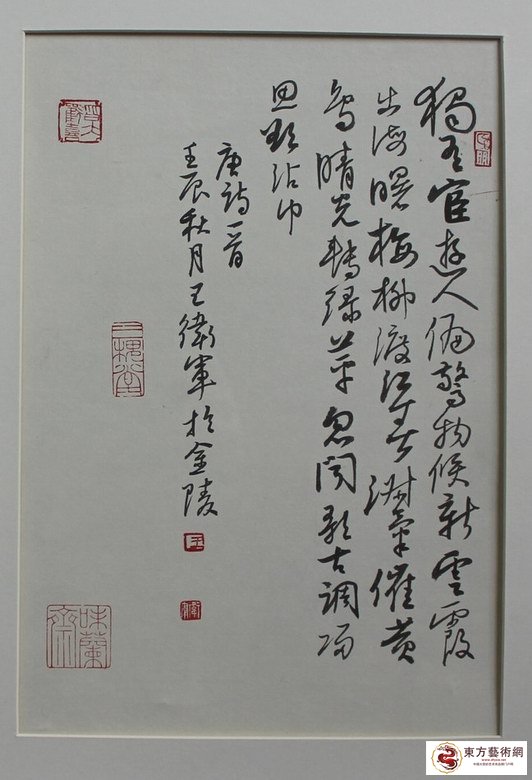 獨有宦遊人偏驚物候新雲霞
出海曙梅柳渡江春淑氣催黃
鳥晴光轉綠苹忽聞歌古調歸
思欲沾巾
唐詩一首
壬辰秋月王衛軍於金陵
三槐堂
味蘭齋
東方藝術網